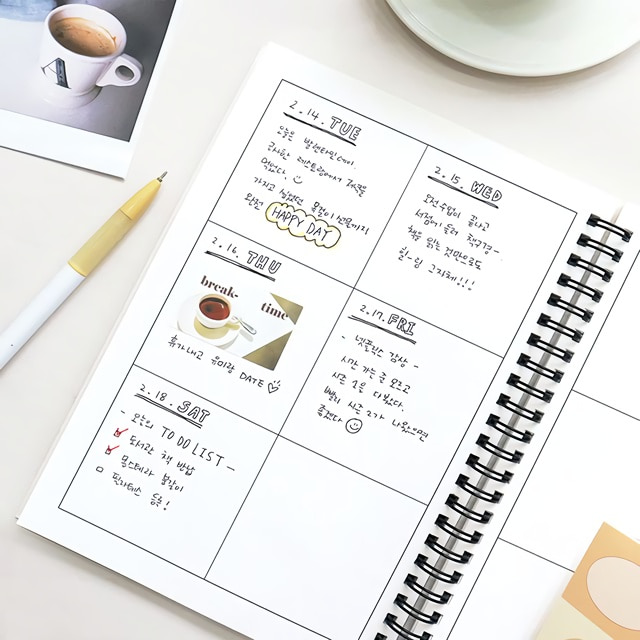 A
2.14. TUE
오늘은 발렌타인데이.
근사한 레스토랑에서 저녁을
먹었다. :)
가지고 싶었던 목걸이 선물까지
완전 HAPPY DAY
2.15. WED
오전수업이 끝나고
서점에 들러 책구경-
책을 읽는 것만으로도
힐-링 그자체!!!
2.16. THU
break-
time
휴가내고 유미랑 DATE ♡
2.17. FRI
- 넷플릭스 감상 -
시간 가는 줄 모르고
시즌 1을 다 봤다.
빨리 시즌 2가 나왔으면
좋겠다 ☺
2.18. SAT
- 오늘의 TO DO LIST -
☑ 도서관 책 반납
☑ 몬스테라 분갈이
□ 필라테스 등록!